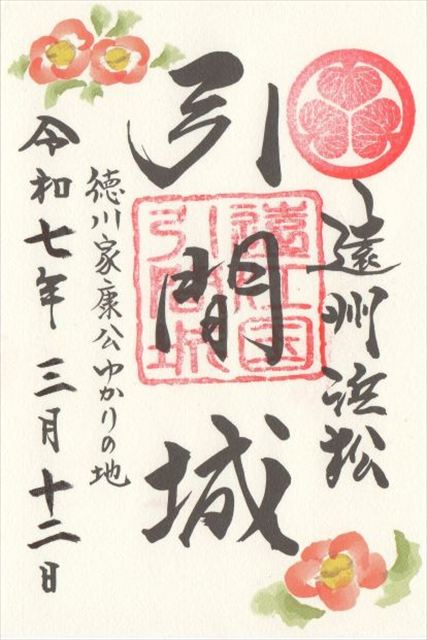 遠州浜松
引間城
遠江国
引間城
徳川家康公ゆかりの地
令和七年三月十二日